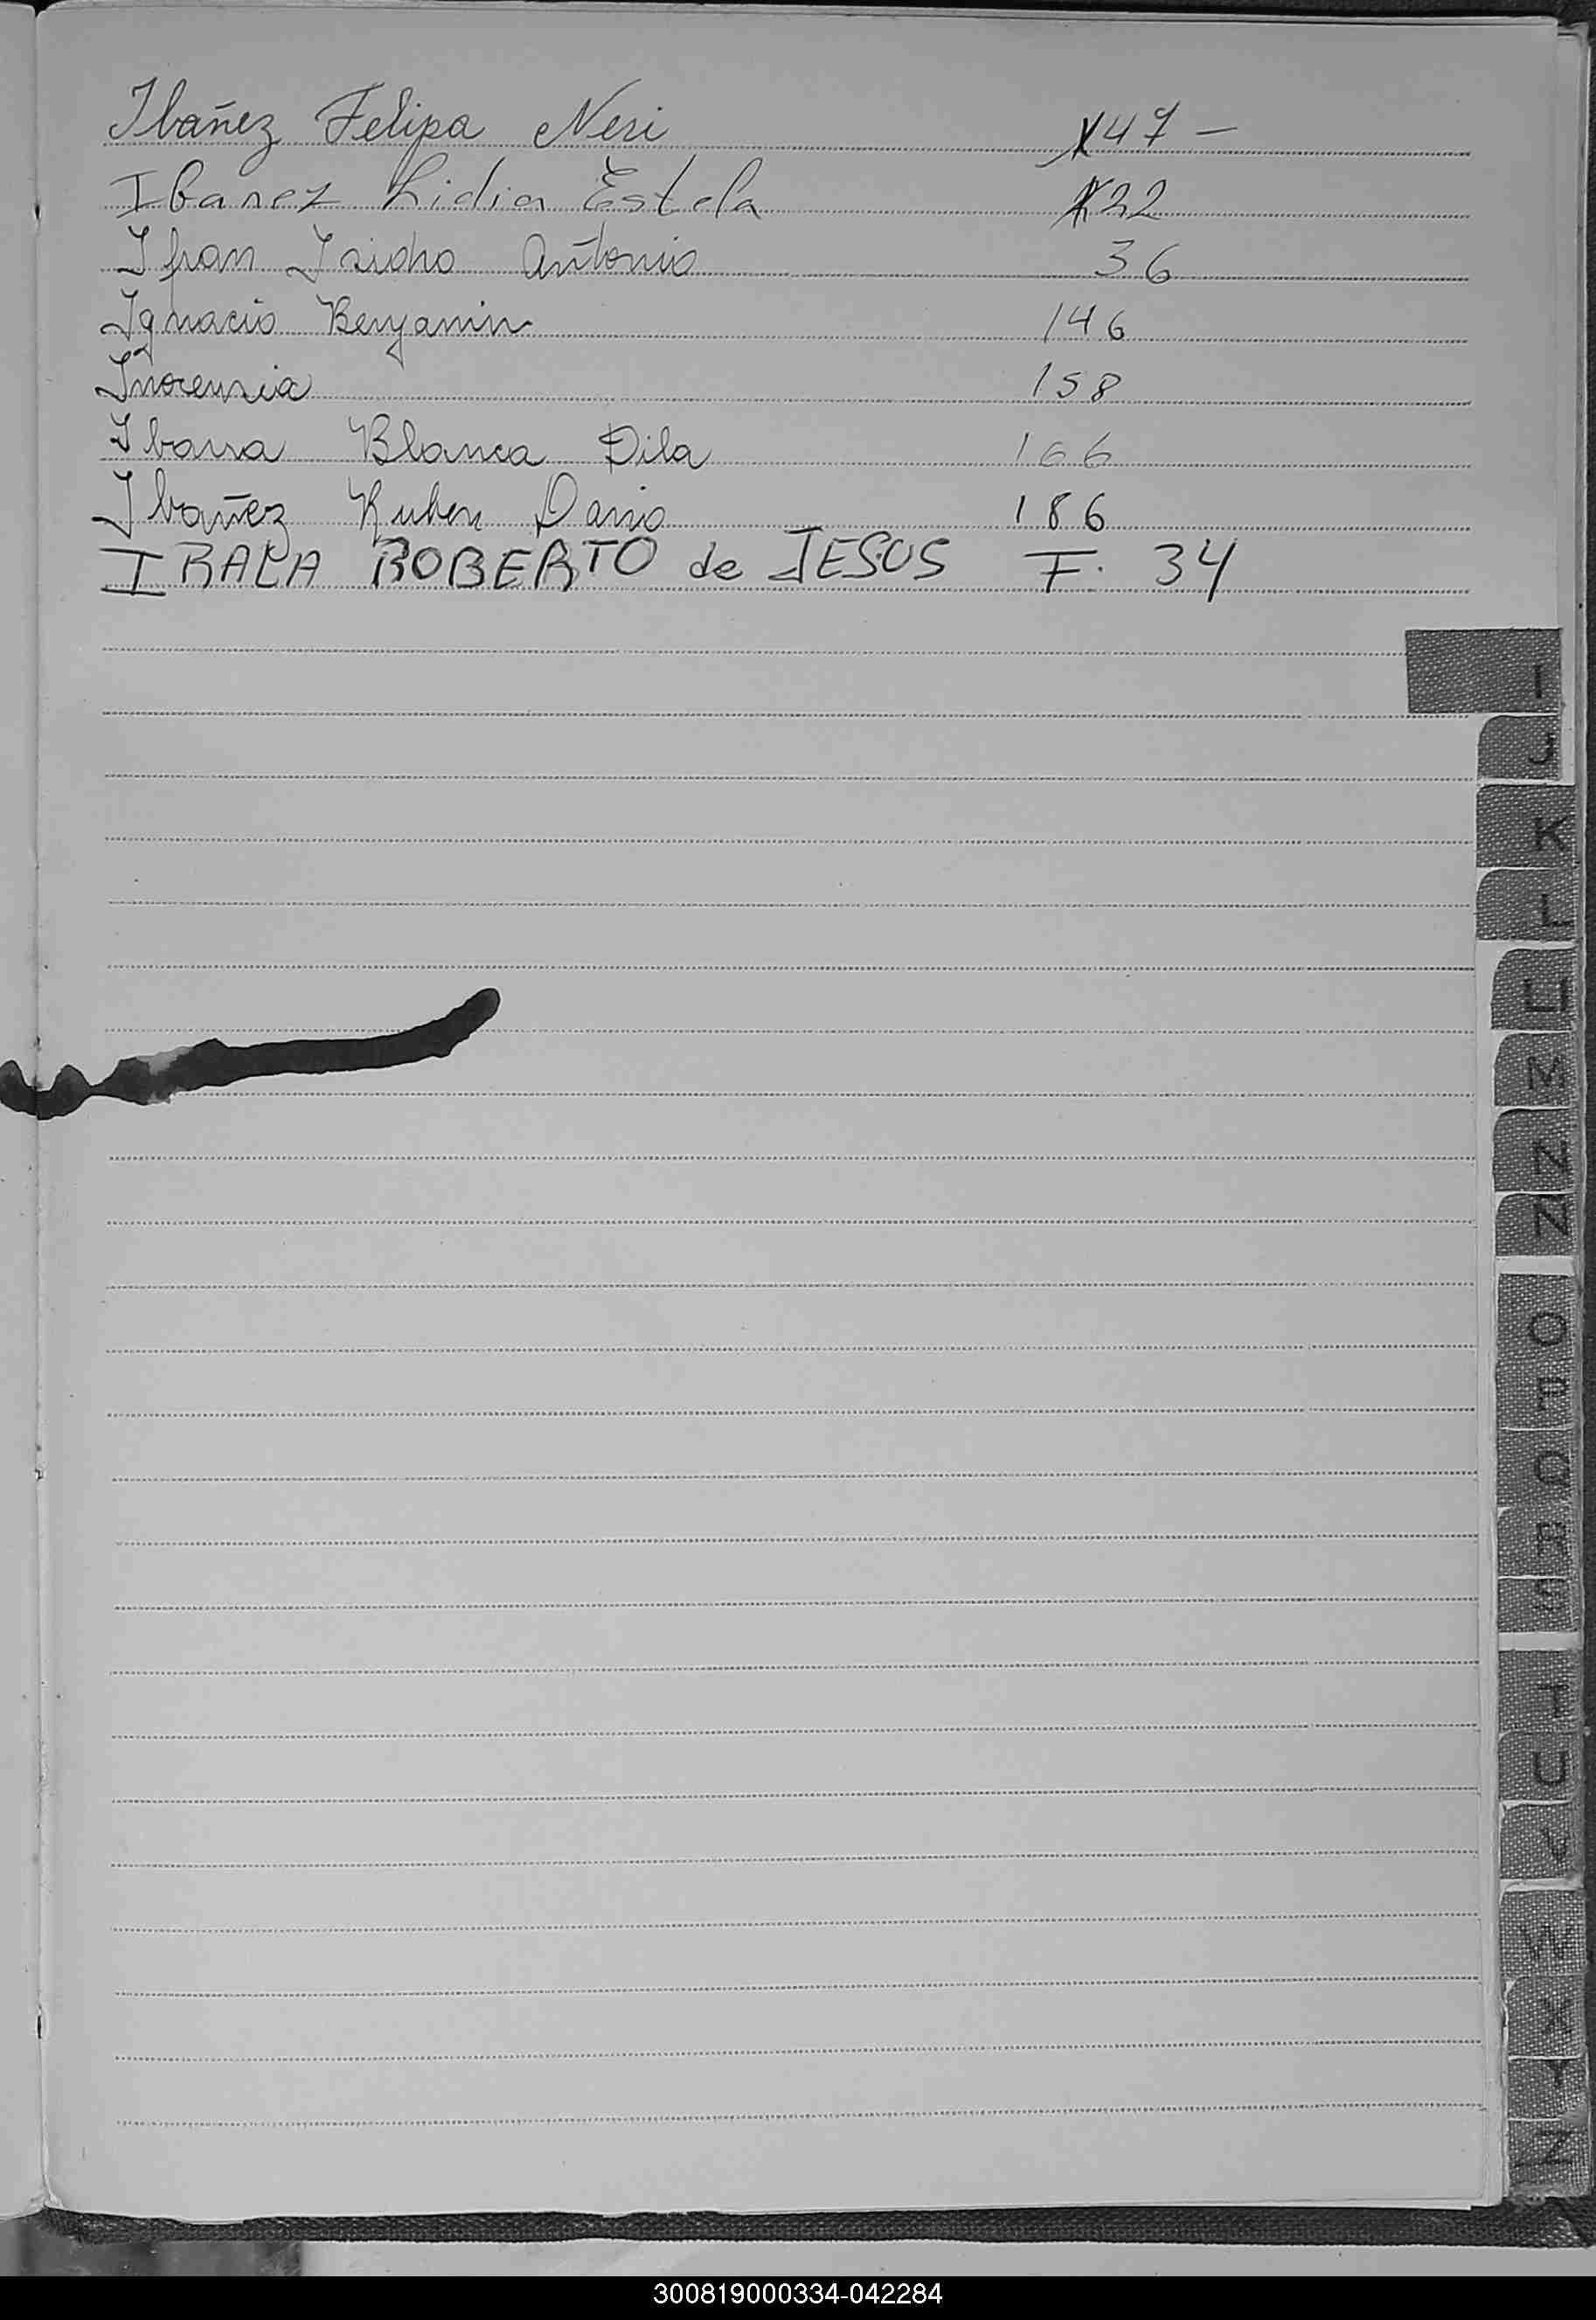 Ibañez Felipa Neri 147 —
Ibanez Lidia Estela 122
Ifran Isidro Antonio 36
Ignacio Benjamin 146
Inocensia 158
Ibarra Blanca Dila 166
Ibañez Ruben Dario 186
IRALA ROBERTO de JESUS F. 34
I
J
K
L
LL
M
N
Ñ
O
P
Q
R
S
T
U
V
W
X
Y
Z
300819000334-042284